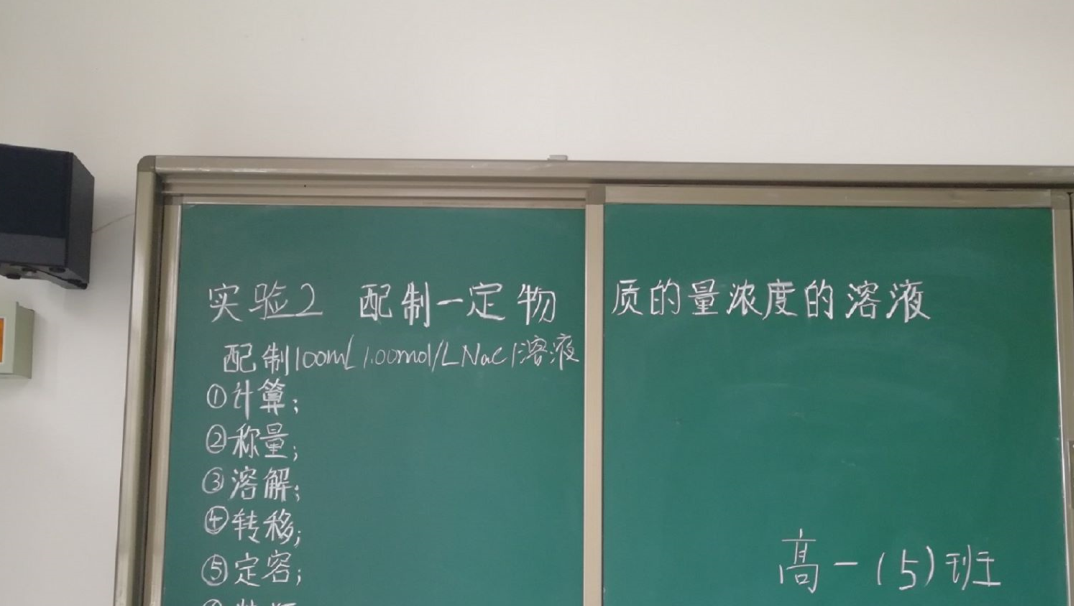 实验2 配制一定物质的量浓度的溶液
配制100mL 1.00mol/L NaCl溶液
①计算;
②称量;
③溶解;
④转移;
⑤定容;
高一(5)班